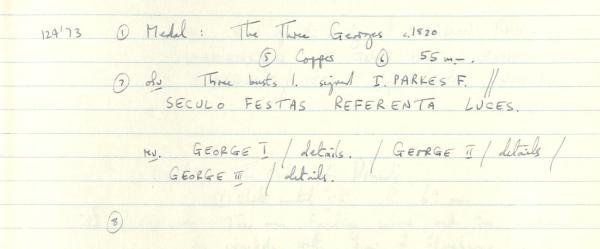 124'73 ① Medal : The Three Georges c.1820
⑤ Copper ⑥ 55 m—.
⑦ obv Three busts l. signed I. PARKES F. //
SECULO FESTAS REFERENTA LUCES.
rev. GEORGE I / details. / GEORGE II / details /
GEORGE III / details.
⑧